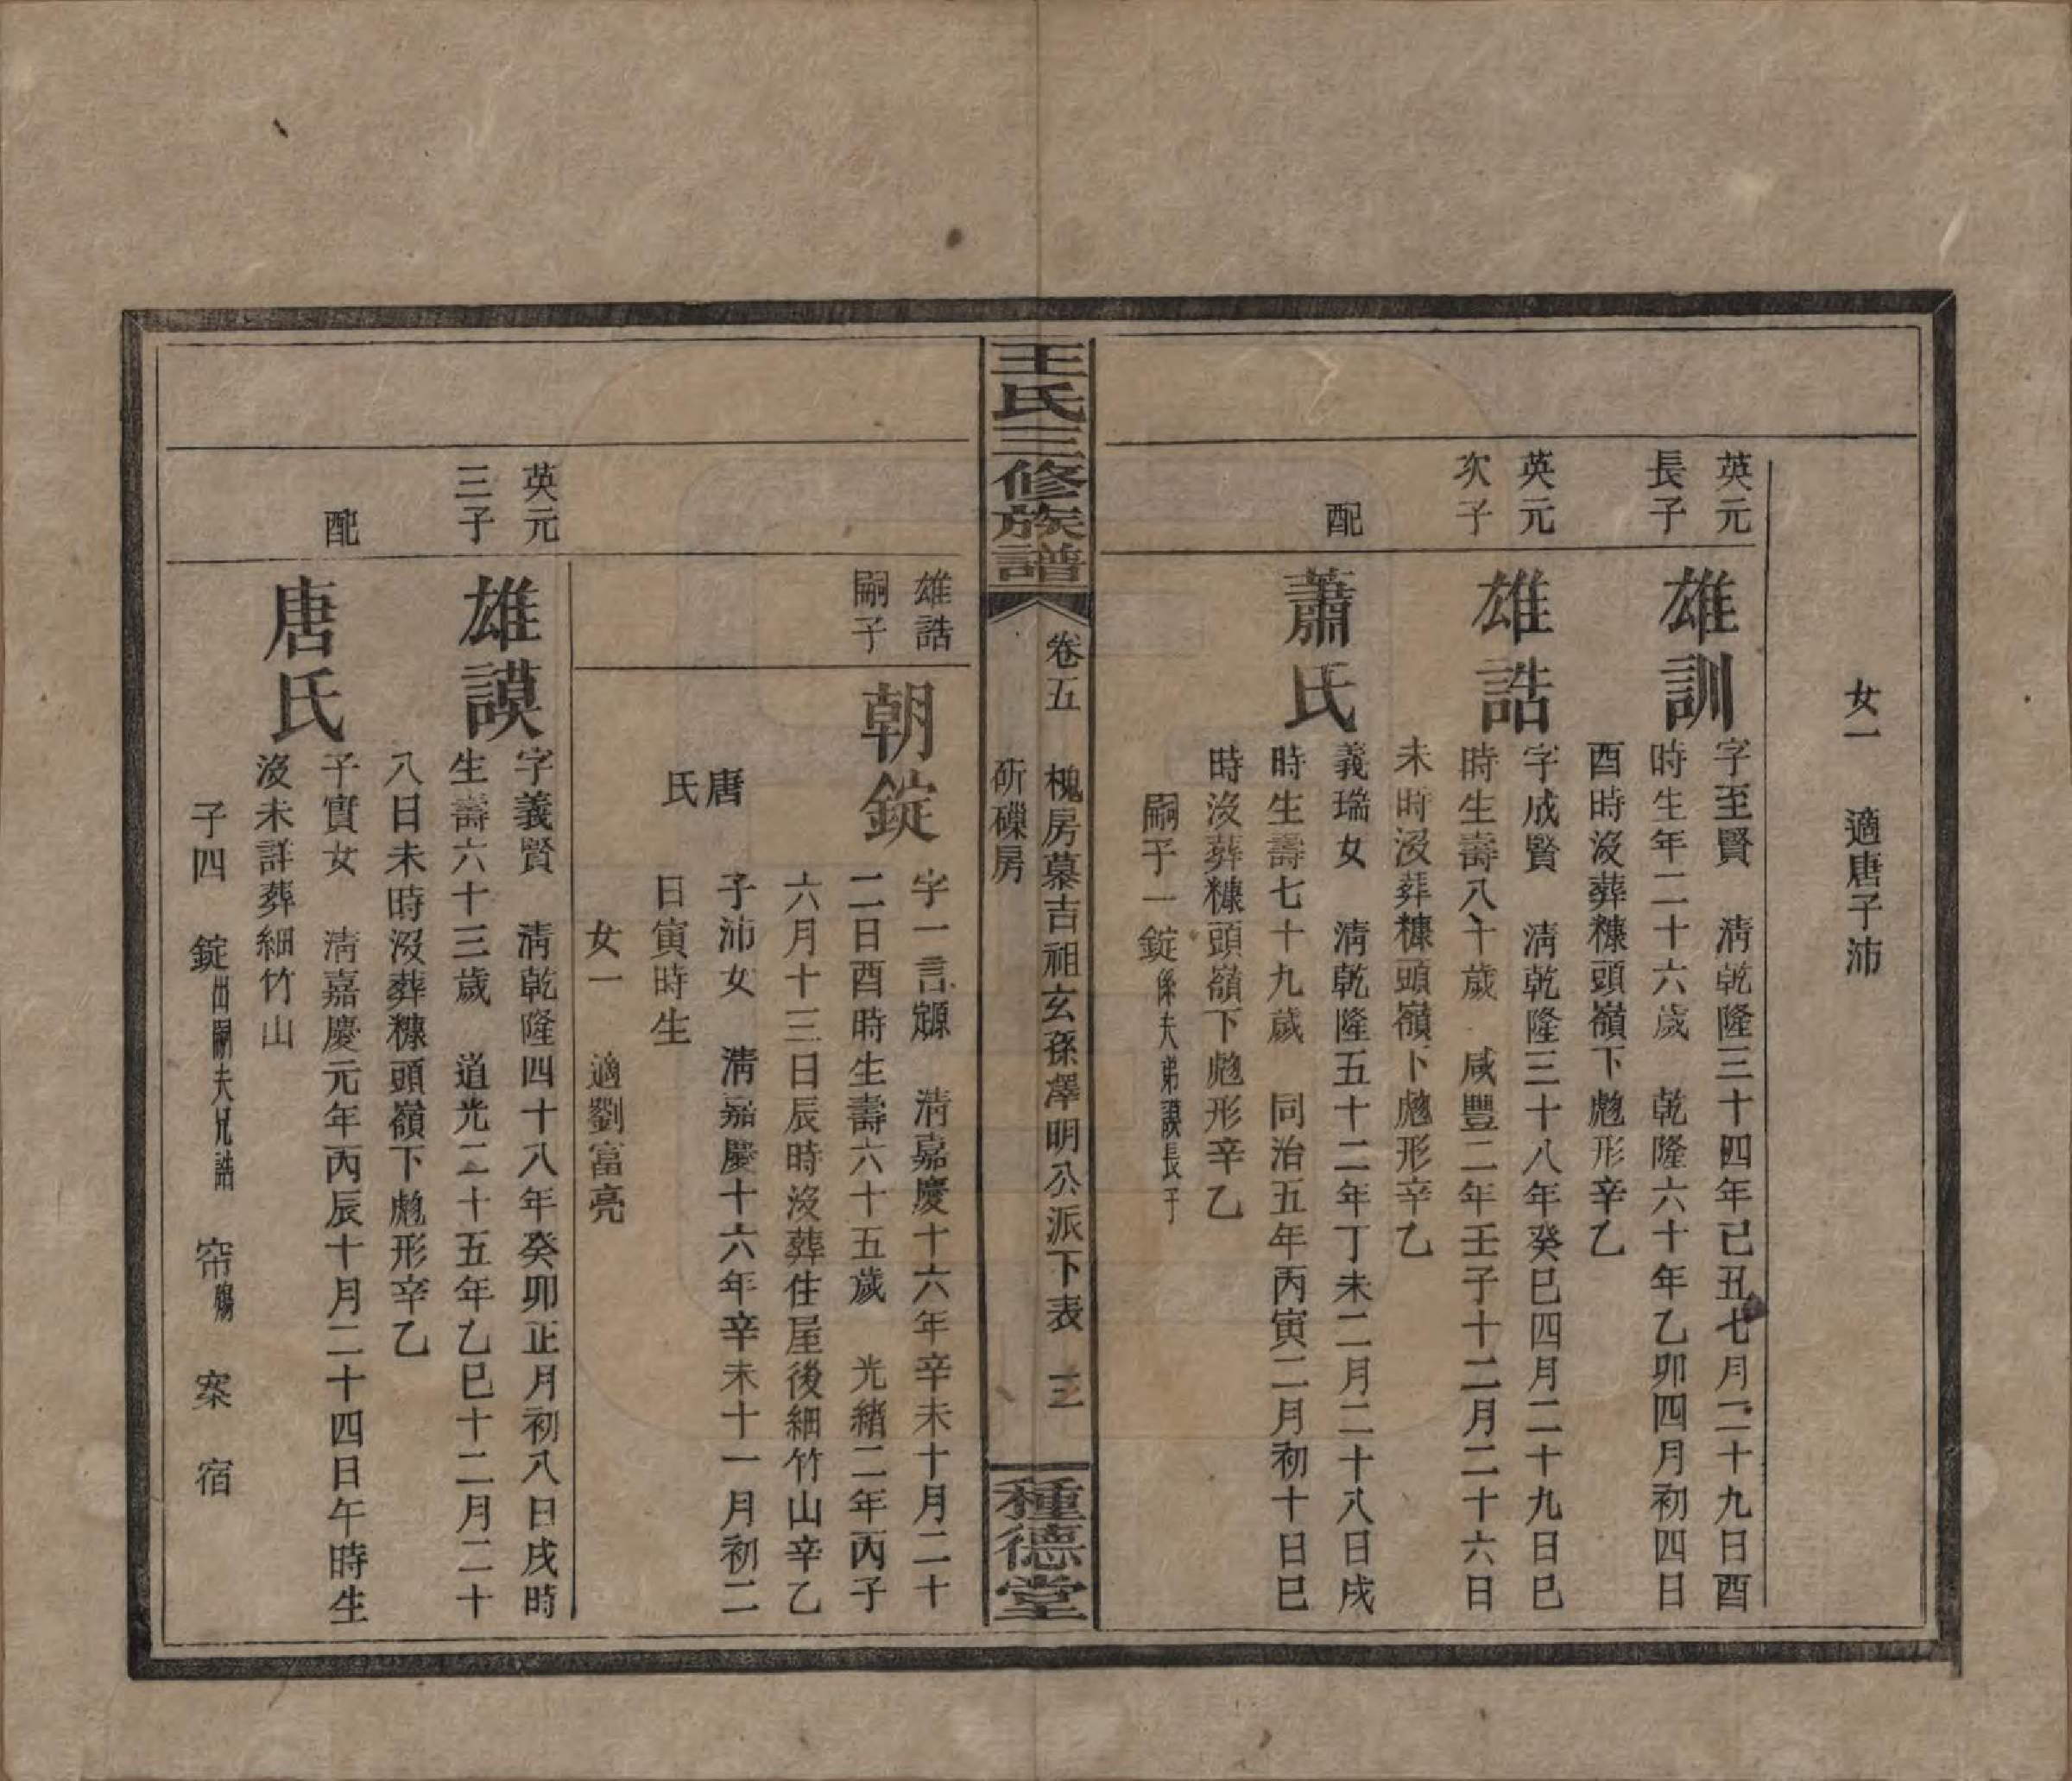 女一　適唐子沛
英元
長子
雄訓
字至賢　淸乾隆三十四年已丑七月二十九日酉
時生年二十六歲　乾隆六十年乙卯四月初四日
酉時沒葬糠頭嶺下彪形辛乙
英元
次子
雄誥
字成賢　淸乾隆三十八年癸巳四月二十九日巳
時生壽八十歲　咸豐二年壬子十二月二十六日
未時沒葬糠頭嶺下彪形辛乙
配
蕭氏
義瑞女　淸乾隆五十二年丁未二月二十八日戌
時生壽七十九歲　同治五年丙寅二月初十日巳
時沒葬糠頭嶺下彪形辛乙
嗣子一錠係夫弟謨長子
王氏三修族譜
卷五　槐房慕吉祖玄孫澤明公派下表　三
斫磔房
種德堂
雄誥
嗣子
朝錠
字一言源定　淸嘉慶十六年辛未十月二十
二日酉時生壽六十五歲　光緖二年丙子
六月十三日辰時沒葬住屋後細竹山辛乙
唐氏
子沛女　淸嘉慶十六年辛未十一月初二
日寅時生
女一　適劉富亮
英元
三子
雄謨
字義賢　淸乾隆四十八年癸卯正月初八日戌時
生壽六十三歲　道光二十五年乙巳十二月二十
八日未時沒葬糠頭嶺下彪形辛乙
配
唐氏
子實女　淸嘉慶元年丙辰十月二十四日午時生
沒未詳葬細竹山
子四　錠出嗣夫兄誥　帘殤　案　宿